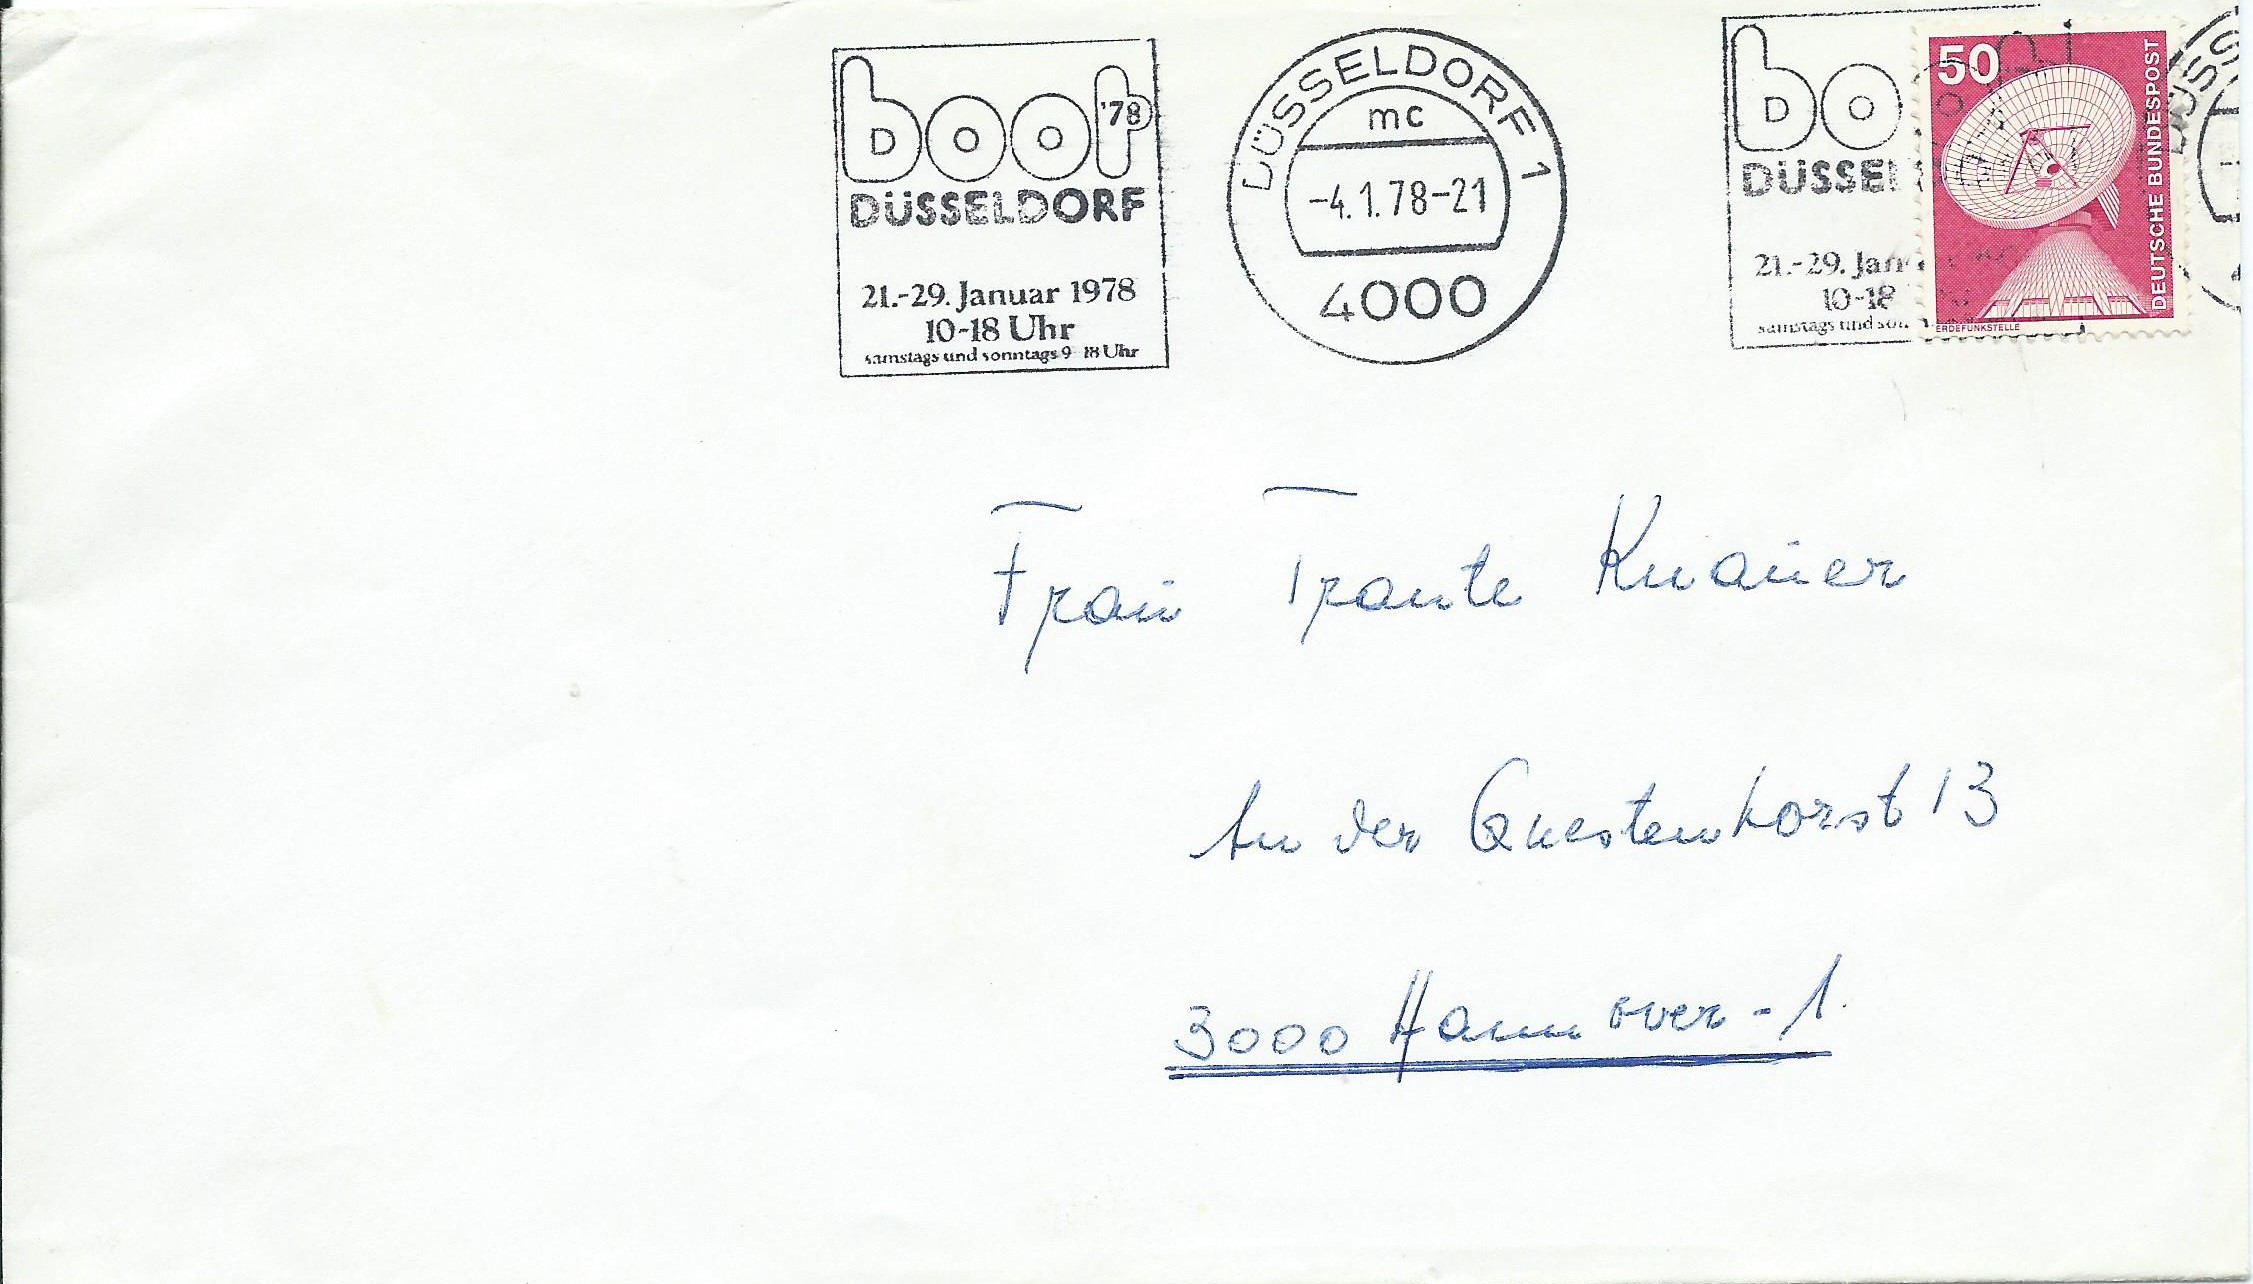 boot '78
DÜSSELDORF
21.-29. Januar 1978
10-18 Uhr
samstags und sonntags 9-18 Uhr
DÜSSELDORF 1
mc
-4.1.78-21
4000
bo
DÜSSEL
21.-29. Jan
10-18
samstags und son
50
DEUTSCHE BUNDESPOST
ERDEFUNKSTELLE
DÜSS
Frau Traute Knauer
An der Questenhorst 13
3000 Hannover-1.